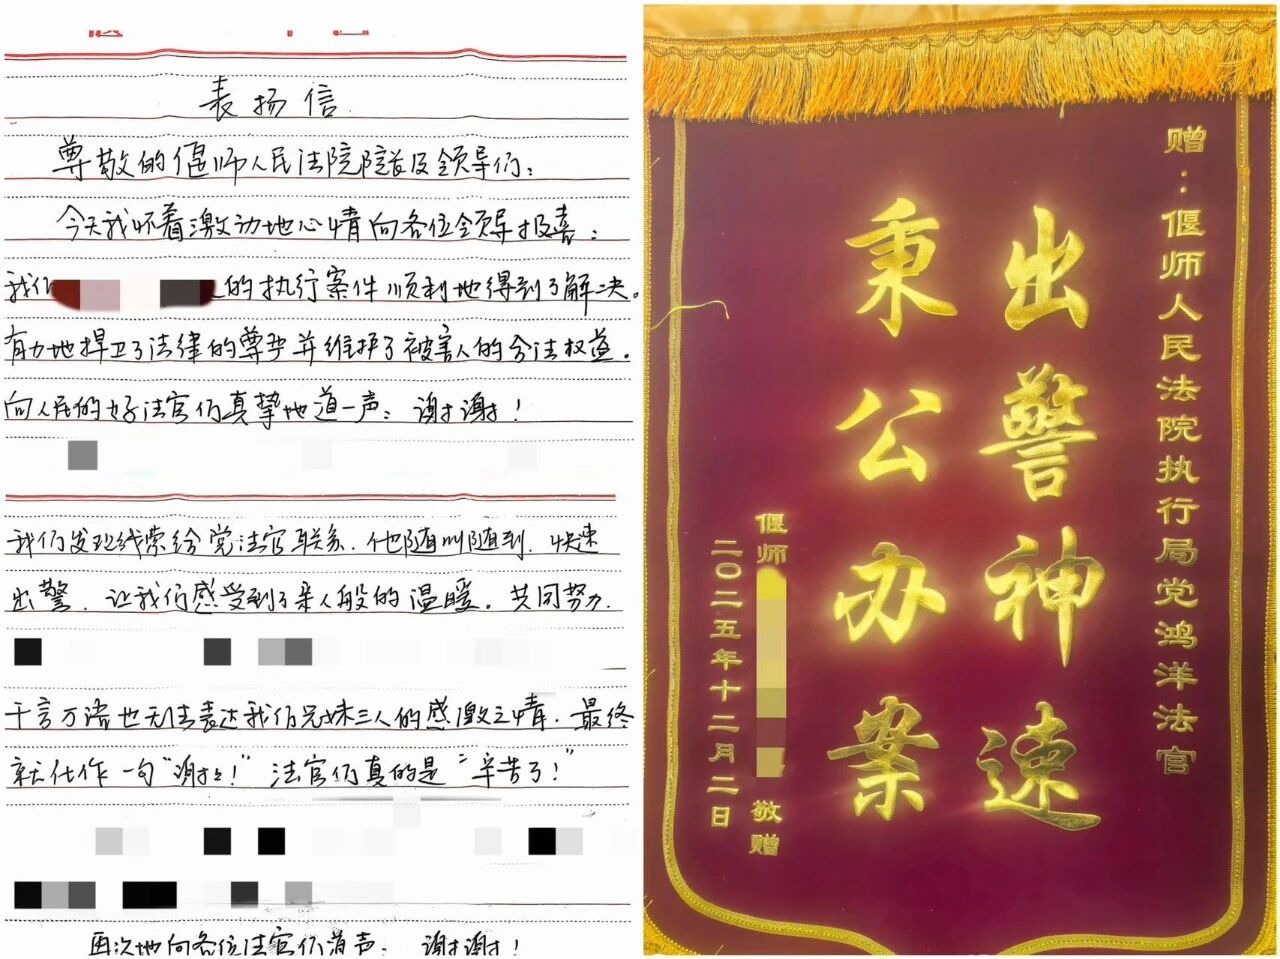 表扬信
尊敬的偃师人民法院院长及领导们：
今天我怀着激动地心情向各位领导报喜：
我们
的执行案件顺利地得到了解决。
有力地捍卫了法律的尊严并维护了被害人的合法权益。
向人民的好法官们真挚地道一声：谢谢！
我们发现线索给党法官联系，他随叫随到，快速
出警，让我们感受到了亲人般的温暖。共同努力，
千言万语也无法表达我们兄妹三人的感激之情，最终
就化作一句“谢谢！”法官们真的是“辛苦了！”
再次地向各位法官们道声：谢谢！
赠：偃师人民法院执行局党鸿洋法官
出警神速
秉公办案
偃师
敬赠
二〇二五年十二月二日